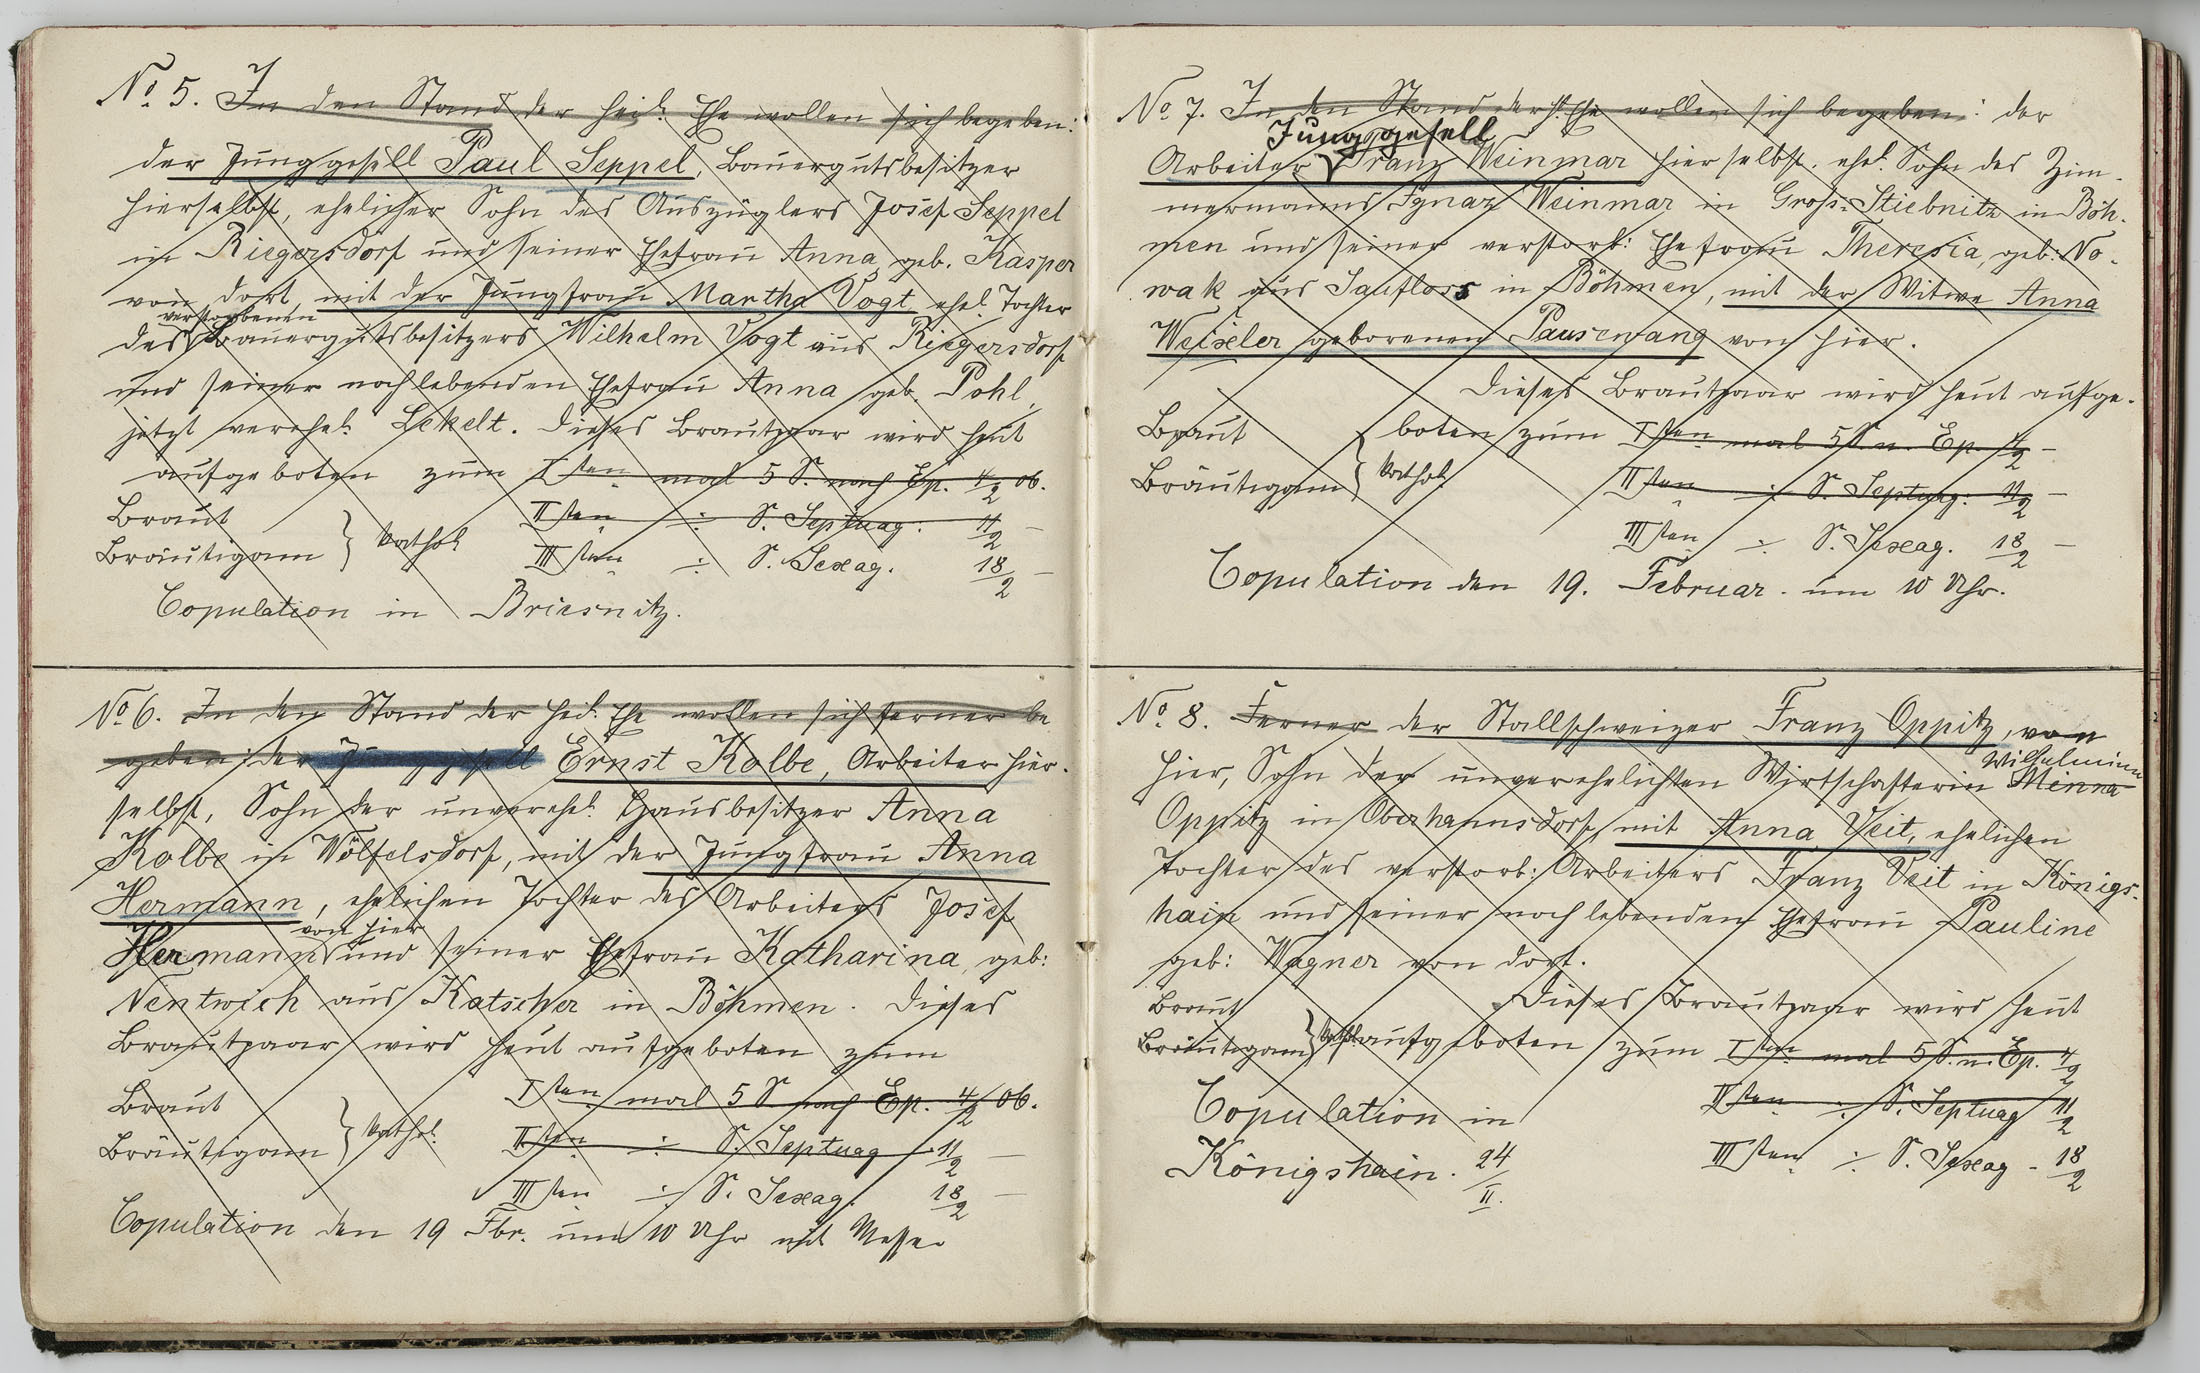 No 5. In den Stand der heil. Ehe wollen sich begeben:
der Junggesell Paul Seppel, Bauergutsbesitzer
hierselbst, ehelicher Sohn des Auszüglers Josef Seppel
in Riegersdorf und seiner Ehefrau Anna geb. Kasper
von dort, mit der Jungfrau Martha Vogt ehel. Tochter
verstorbenen
des Bauergutsbesitzers Wilhelm Vogt aus Riegersdorf
und seiner noch lebenden Ehefrau Anna geb. Pohl,
jetzt verehel. Lekelt. Dieses Brautpaar wird heut
aufgeboten zum I sten mal 5 S. nach Ep. 4/2 06.
Braut II sten ÷ S. Septuag. 11/2 –
Bräutigam } kathol. III sten ÷ S. Sexag. 18/2 –
Copulation in Briesnitz.
No 6. In den Stand der heil. Ehe wollen sich ferner be
geben: der Junggesell Ernst Kolbe, Arbeiter hier-
selbst, Sohn der unverehel. Hausbesitzer Anna
Kolbe in Wölfelsdorf, mit der Jungfrau Anna
Hermann, ehelichen Tochter des Arbeiters Josef
von hier
Hermann und seiner Ehefrau Katharina, geb:
Nentwich aus Katscher in Böhmen. Dieses
Brautpaar wird heut aufgeboten zum
Braut I sten mal 5 S nach Ep. 4/2 06.
Bräutigam } kathol. II sten ÷ S. Septuag 11/2 –
III sten ÷ S. Sexag. 18/2 –
Copulation den 19 Fbr. um 10 Uhr mit Messe
No 7. In den Stand der h. Ehe wollen sich begeben: der
Junggesell
Arbeiter Franz Weinmar hierselbst. ehel. Sohn des Zim-
mermanns Ignaz Weinmar in Groß-Stiebnitz in Böh-
men und seiner verstorb: Ehefrau Theresia, geb: No-
wak aus Saufloss in Böhmen, mit der Witwe Anna
Weixeler geborenen Pausewang von hier.
Dieses Brautpaar wird heut aufge-
Braut boten zum I sten mal 5 S. n. Ep. 4/2 –
Bräutigam } kathol. II sten ÷ S. Septuag: 11/2 –
III sten ÷ S. Sexag. 18/2 –
Copulation den 19. Februar. um 10 Uhr.
No 8. Ferner der Stallschweizer Franz Oppitz, von
Wilhelmine
hier, Sohn der unverehelichten Wirtschafterin Minna
Oppitz in Oberhannsdorf, mit Anna Veit, ehelichen
Tochter des verstorb: Arbeiters Franz Veit in Königs-
hain und seiner noch lebenden Ehefrau Pauline
geb: Wagner von dort.
Braut Dieses Brautpaar wird heut
Bräutigam } kathol. aufgeboten zum I sten mal 5 S. n. Ep. 4/2
Copulation in II sten ÷ S. Septuag 11/2
Königshain. 24/II. III sten ÷ S. Sexag – 18/2